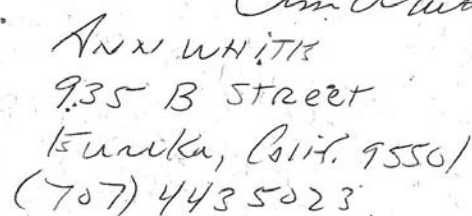 Ann White
935 B Street
Eureka, Calif. 95501
(707) 443 5023